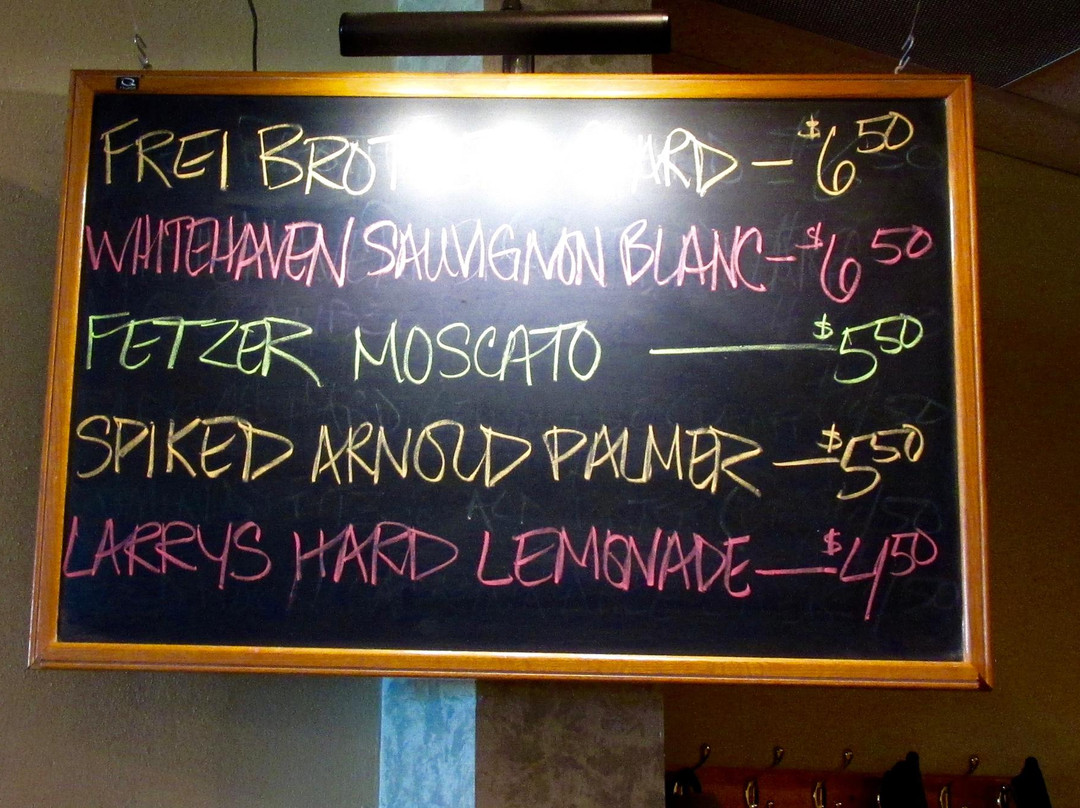 FREI — $6 50
WHITEHAVEN SAUVIGNON BLANC - $6 50
FETZER MOSCATO — $5 50
SPIKED ARNOLD PALMER — $5 50
LARRYS HARD LEMONADE — $4 50